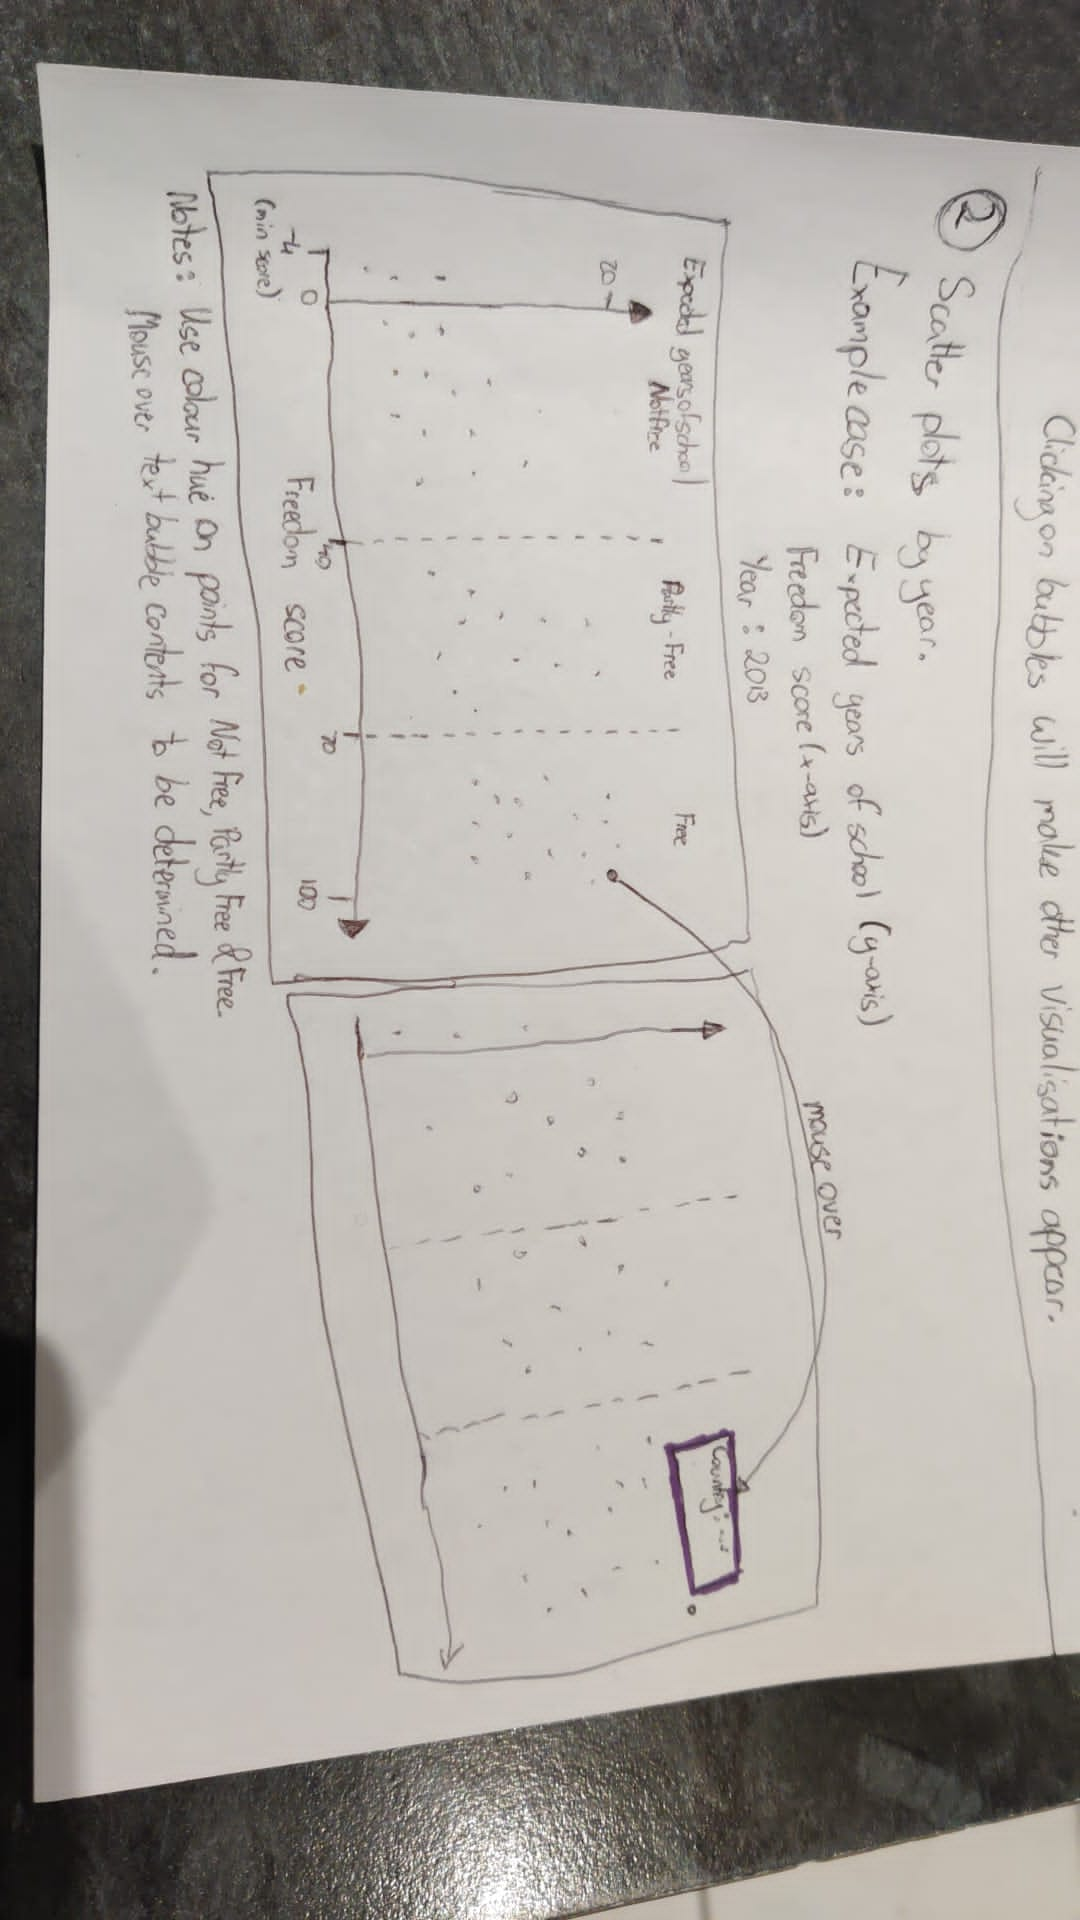 Clicking on bubbles will make other visualisations appear.
② Scatter plots by year.
Example case: Expected years of school (y-axis)
Freedom score (x-axis)
Year: 2013
mouse over
Expected years of school
Not Free
Partly-Free
Free
20
Country: ...
-4
0
40
70
100
(min score)
Freedom score
Notes: Use colour hue on points for Not Free, Partly Free & Free.
Mouse over text bubble contents to be determined.